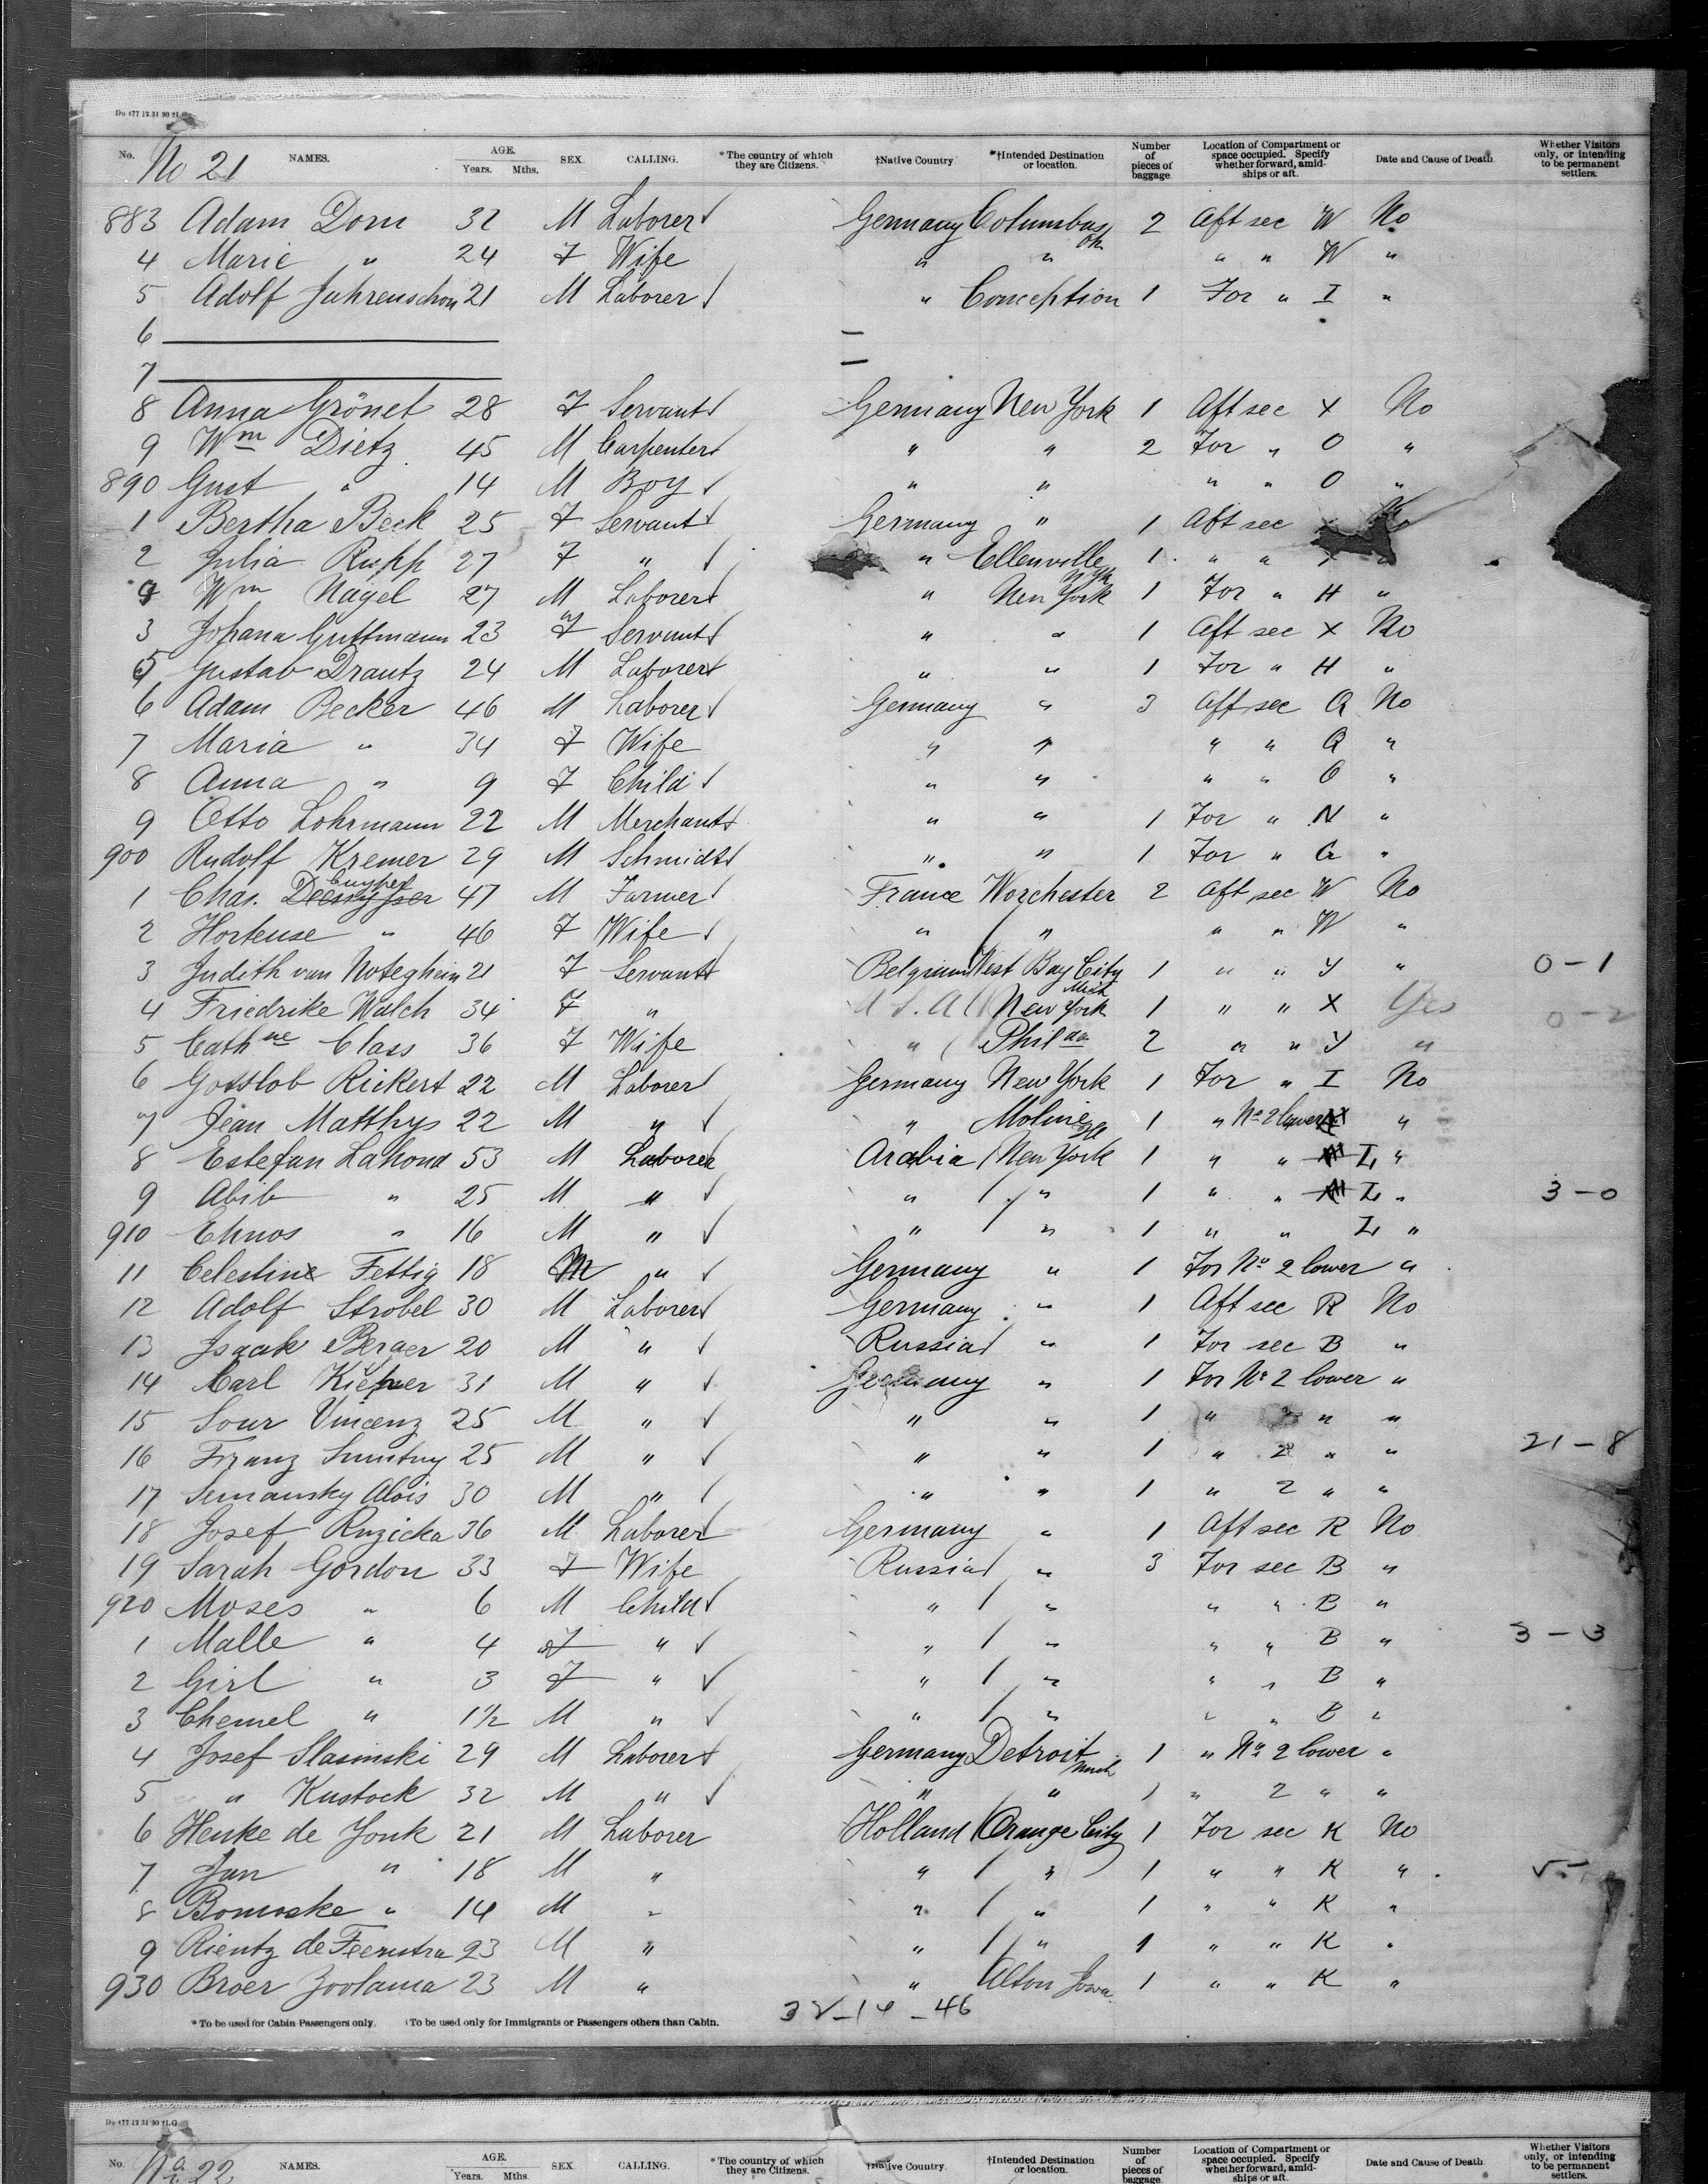 Do 477 12.31 90 21.G
No. NAMES. AGE. Years. Mths. SEX. CALLING. *The country of which they are Citizens. †Native Country *†Intended Destination or location. Number of pieces of baggage Location of Compartment or space occupied. Specify whether forward, amidships or aft. Date and Cause of Death. Whether Visitors only, or intending to be permanent settlers.
No 21
883 Adam Dorn 32 M Laborer Germany Columbus Oh 2 Aft sec W No
4 Marie " 24 F Wife " " " " W "
5 Adolf Juhrenschon 21 M Laborer " Conception 1 For " I "
6
7
8 Anna Grönet 28 F Servant Germany New York 1 Aft sec X No
9 Wm Dietz 45 M Carpenter " " 2 For " O "
890 Gust " 14 M Boy " " " " O "
1 Bertha Beck 25 F Servant Germany " 1 Aft sec
2 Julia Rupp 27 F " " Ellenville N.Yk 1 " "
Wm Nagel 27 M Laborer " New York 1 For " H "
3 Johana Guttmann 23 F Servant " " 1 Aft sec X No
5 Gustav Drautz 24 M Laborer " " 1 For " H "
6 Adam Becker 46 M Laborer Germany " 3 Aft sec Q No
7 Maria " 34 F Wife " " " " Q "
8 Anna " 9 F Child " " " " "
9 Otto Lohrmann 22 M Merchant " " 1 For " N "
900 Rudolf Kremer 29 M Schmidt " " 1 For " G "
1 Chas. Decuyper 47 M Farmer France Worchester 2 Aft sec W No
2 Hortense " 46 F Wife " " " " W "
3 Judith van Noteghein 21 F Servant Belgium West Bay City Mich 1 " " Y " 0-1
4 Friedrike Walch 34 F " U.S.A New York 1 " " X Yes 0-2
5 Cathne Class 36 F Wife " Philda 2 " " Y "
6 Gottlob Rickert 22 M Laborer Germany New York 1 For " I No
7 Jean Matthys 22 M " " Moline Ill 1 " No 2 lower "
8 Estefan Lahoud 53 M Laborer Arabia New York 1 " " L "
9 Abib " 25 M " " " 1 " " L " 3-0
910 Ehnos " 16 M " " " 1 " " L "
11 Celestine Fettig 18 M " Germany " 1 For No 2 lower "
12 Adolf Strobel 30 M Laborer Germany " 1 Aft sec R No
13 Isaak Berger 20 M " Russia " 1 For sec B "
14 Carl Kiefner 31 M " Germany " 1 For No 2 lower "
15 Sour Vincenz 25 M " " " 1 " 2 " "
16 Franz Smutny 25 M " " " 1 " 2 " " 21-8
17 Semansky Alois 30 M " " " 1 " 2 " "
18 Josef Ruzicka 36 M Laborer Germany " 1 Aft sec R No
19 Sarah Gordon 33 F Wife Russia " 3 For sec B "
920 Moses " 6 M Child " " " " B "
1 Malle " 4 F " " " " " B " 3-3
2 Girl " 3 F " " " " " B "
3 Chemel " 1½ M " " " " " B "
4 Josef Slasinski 29 M Laborer Germany Detroit Mich 1 " No 2 lower "
5 " Kustock 32 M " " " 1 " 2 " "
6 Henke de Jonk 21 M Laborer Holland Orange City 1 For sec K No
7 Jan " 18 M " " " 1 " " K "
8 Bomoske " 14 M " " " 1 " " K "
9 Rientz de Feenstra 23 M " " " 1 " " K "
930 Broer Zoolama 23 M " " Alton Iowa 1 " " K "
32-14-46
*To be used for Cabin Passengers only. †To be used only for Immigrants or Passengers others than Cabin.
Do 477 12 31 90 21.G
No. NAMES. AGE. Years. Mths. SEX CALLING. *The country of which they are Citizens. †Native Country. †Intended Destination or location. Number of pieces of baggage Location of Compartment or space occupied. Specify whether forward, amidships or aft. Date and Cause of Death. Whether Visitors only, or intending to be permanent settlers.
No 22